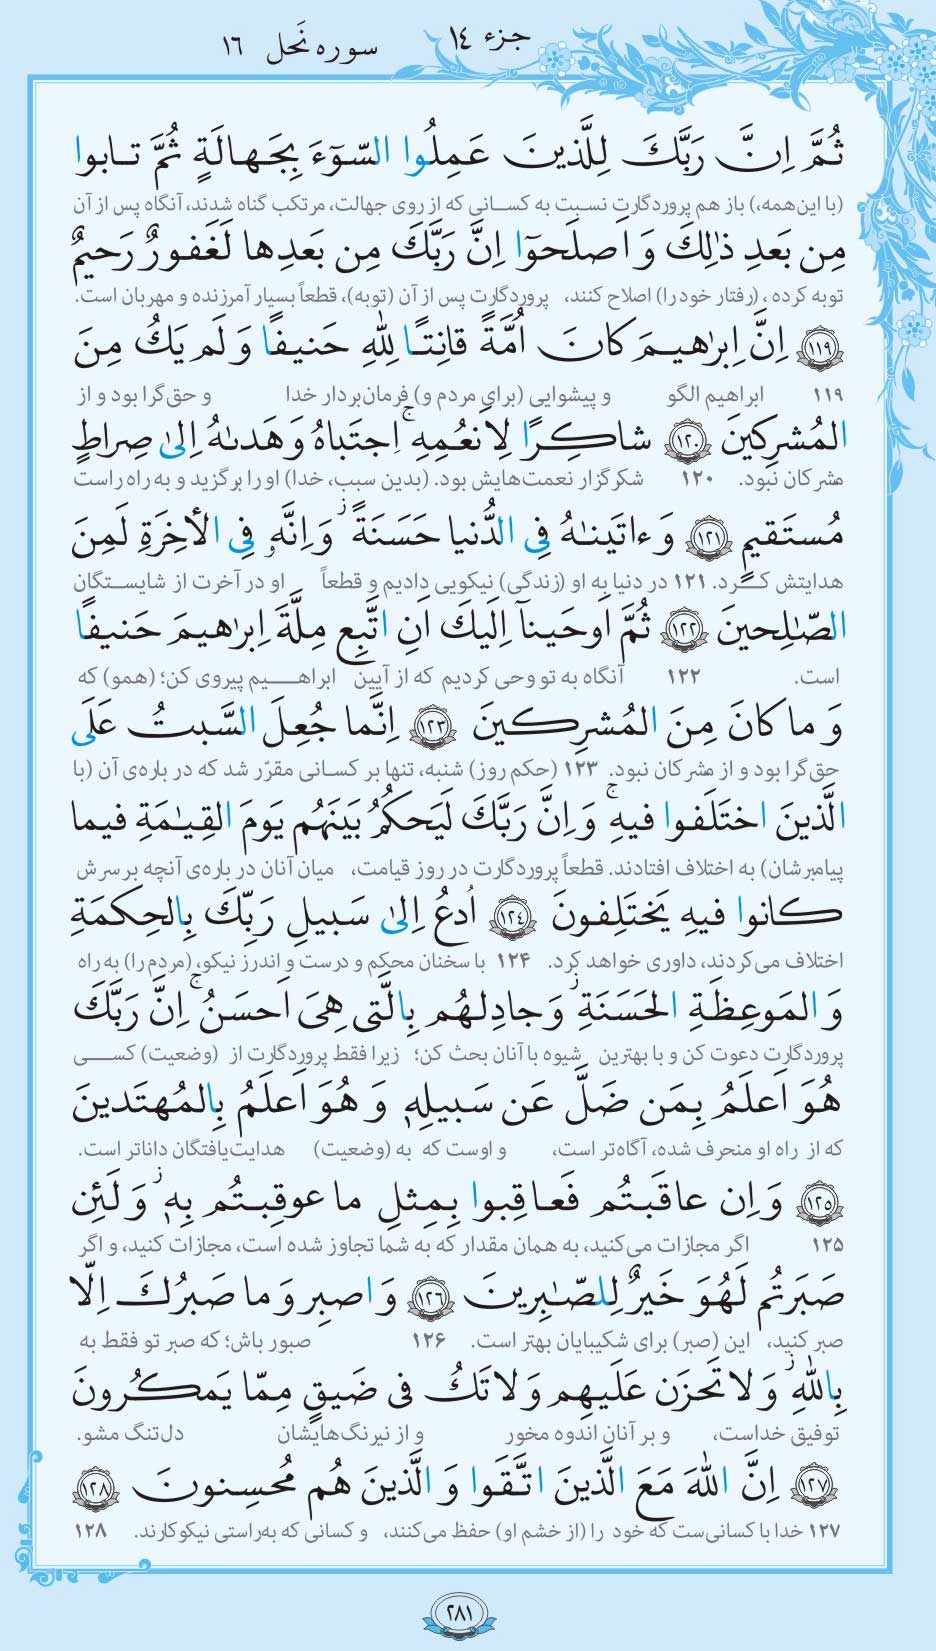 جزء ۱۴
سوره نَحل ۱۶
ثُمَّ اِنَّ رَبَّكَ لِلَّذينَ عَمِلُوا السّوٓءَ بِجَهالَةٍ ثُمَّ تابوا
(با این‌همه،) باز هم پروردگارت نسبت به کسانی که از روی جهالت، مرتکب گناه شدند، آنگاه پس از آن
مِن بَعدِ ذٰلِكَ وَ اَصلَحوٓا اِنَّ رَبَّكَ مِن بَعدِها لَغَفورٌ رَحيمٌ
توبه کرده، (رفتار خود را) اصلاح کنند، پروردگارت پس از آن (توبه)، قطعاً بسیار آمرزنده و مهربان است.
﴿١١٩﴾ اِنَّ اِبرٰهيمَ كانَ اُمَّةً قانِتًا لِلّٰهِ حَنيفًا وَ لَم يَكُ مِنَ
۱۱۹ ابراهیم الگو و پیشوایی (برای مردم و) فرمان‌بردار خدا و حق‌گرا بود و از
المُشرِكينَ ﴿١٢٠﴾ شاكِرًا لِاَنعُمِهِ ۚ اِجتَباهُ وَ هَدىٰهُ اِلىٰ صِراطٍ
مشرکان نبود. ۱۲۰ شکرگزار نعمت‌هایش بود. (بدین سبب، خدا) او را برگزید و به راه راست
مُستَقيمٍ ﴿١٢١﴾ وَ ءاتَينٰهُ فِى الدُّنيا حَسَنَةً ۖ وَ اِنَّهٗ فِى الأخِرَةِ لَمِنَ
هدایتش کرد. ۱۲۱ در دنیا به او (زندگی) نیکویی دادیم و قطعاً او در آخرت از شایستگان
الصّٰلِحينَ ﴿١٢٢﴾ ثُمَّ اَوحَينآ اِلَيكَ اَنِ اتَّبِع مِلَّةَ اِبرٰهيمَ حَنيفًا
است. ۱۲۲ آنگاه به تو وحی کردیم که از آیین ابراهیم پیروی کن؛ (همو) که
وَ ما كانَ مِنَ المُشرِكينَ ﴿١٢٣﴾ اِنَّما جُعِلَ السَّبتُ عَلَى
حق‌گرا بود و از مشرکان نبود. ۱۲۳ (حکم روز) شنبه، تنها بر کسانی مقرّر شد که در باره‌ی آن (با
الَّذينَ اختَلَفوا فيهِ ۚ وَ اِنَّ رَبَّكَ لَيَحكُمُ بَينَهُم يَومَ القِيٰمَةِ فيما
پیامبرشان) به اختلاف افتادند. قطعاً پروردگارت در روز قیامت، میان آنان در باره‌ی آنچه بر سرش
كانوا فيهِ يَختَلِفونَ ﴿١٢٤﴾ اُدعُ اِلىٰ سَبيلِ رَبِّكَ بِالحِكمَةِ
اختلاف می‌کردند، داوری خواهد کرد. ۱۲۴ با سخنان محکم و درست و اندرز نیکو، (مردم را) به راه
وَ المَوعِظَةِ الحَسَنَةِ ۖ وَ جادِلهُم بِالَّتى هِىَ اَحسَنُ ۚ اِنَّ رَبَّكَ
پروردگارت دعوت کن و با بهترین شیوه با آنان بحث کن؛ زیرا فقط پروردگارت از (وضعیت) کسی
هُوَ اَعلَمُ بِمَن ضَلَّ عَن سَبيلِهٖ وَ هُوَ اَعلَمُ بِالمُهتَدينَ
که از راه او منحرف شده، آگاه‌تر است، و اوست که به (وضعیت) هدایت‌یافتگان داناتر است.
﴿١٢٥﴾ وَ اِن عاقَبتُم فَعاقِبوا بِمِثلِ ما عوقِبتُم بِهٖ ۖ وَ لَئِن
۱۲۵ اگر مجازات می‌کنید، به همان مقدار که به شما تجاوز شده است، مجازات کنید، و اگر
صَبَرتُم لَهُوَ خَيرٌ لِلصّٰبِرينَ ﴿١٢٦﴾ وَ اصبِر وَ ما صَبرُكَ اِلّا
صبر کنید، این (صبر) برای شکیبایان بهتر است. ۱۲۶ صبور باش؛ که صبر تو فقط به
بِاللّٰهِ ۖ وَ لا تَحزَن عَلَيهِم وَ لا تَكُ فى ضَيقٍ مِمّا يَمكُرونَ
توفیق خداست، و بر آنان اندوه مخور و از نیرنگ‌هایشان دل‌تنگ مشو.
﴿١٢٧﴾ اِنَّ اللّٰهَ مَعَ الَّذينَ اتَّقَوا وَ الَّذينَ هُم مُحسِنونَ ﴿١٢٨﴾
۱۲۷ خدا با کسانی‌ست که خود را (از خشم او) حفظ می‌کنند، و کسانی که به‌راستی نیکوکارند. ۱۲۸
۲۸۱